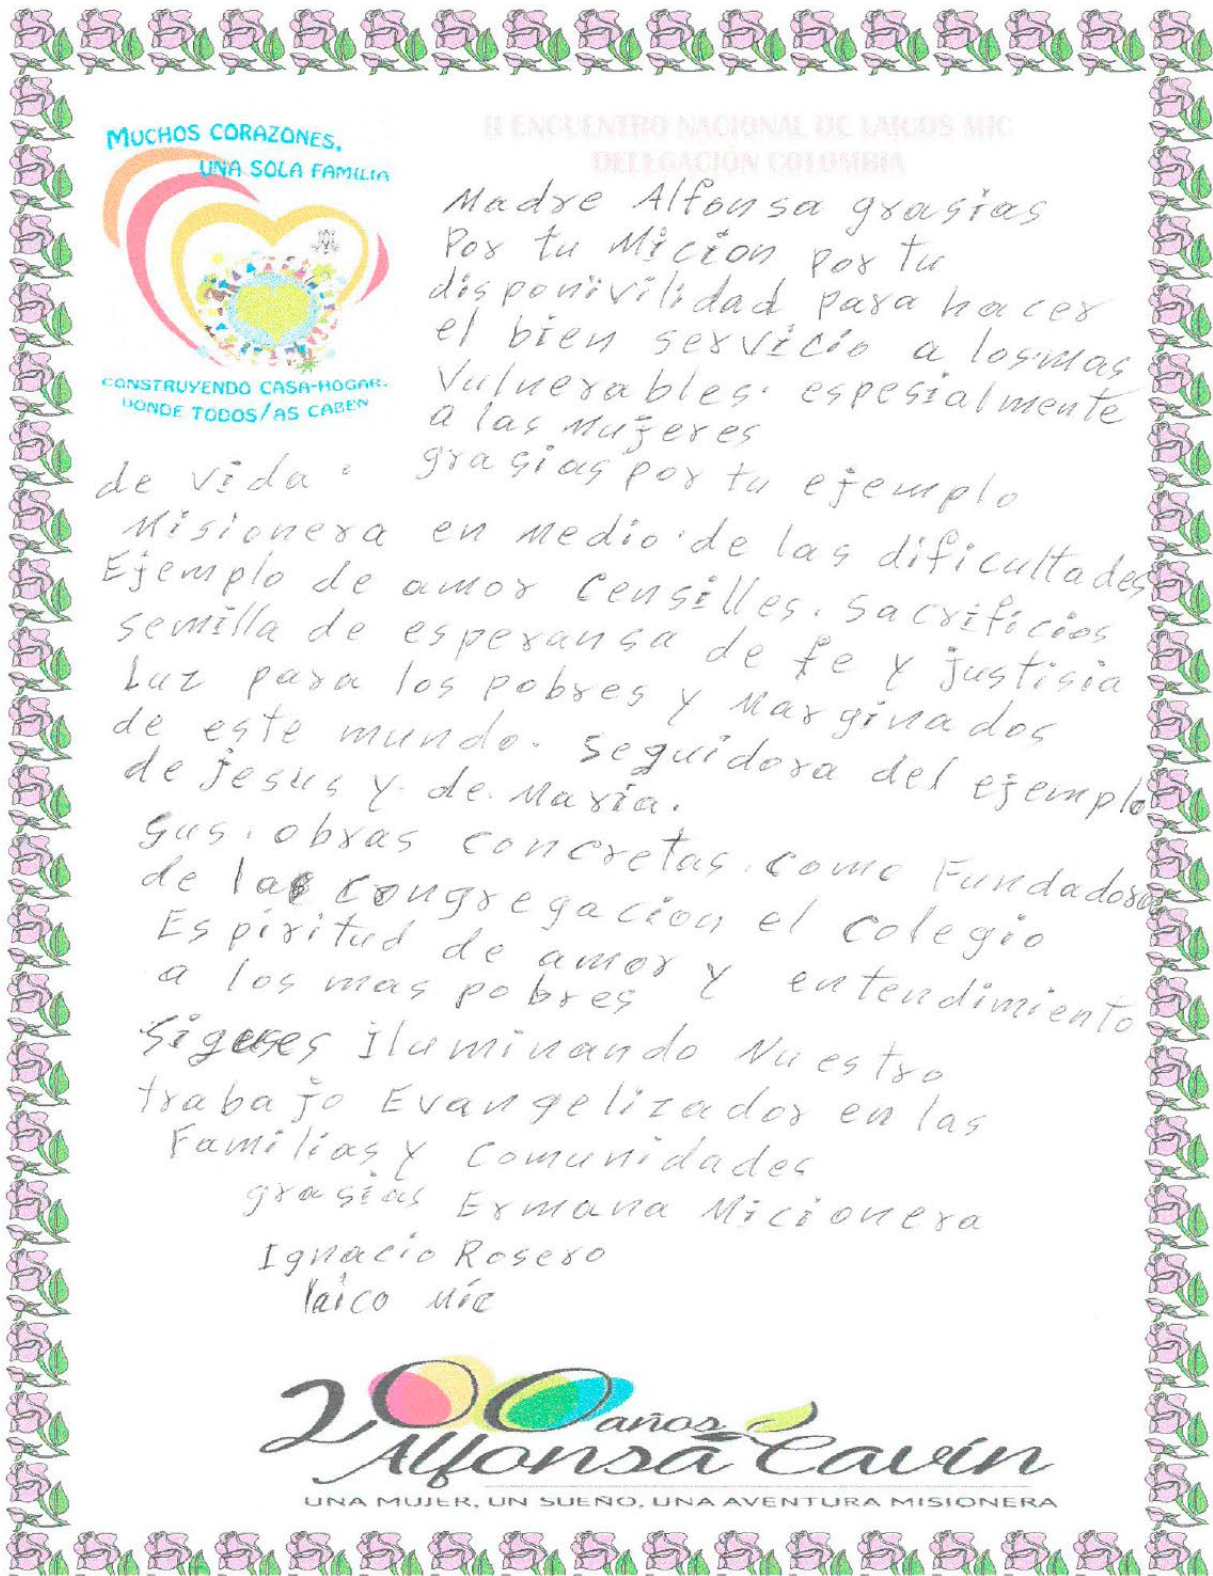 MUCHOS CORAZONES,
UNA SOLA FAMILIA
CONSTRUYENDO CASA-HOGAR.
DONDE TODOS/AS CABEN
II ENCUENTRO NACIONAL DE LAICOS MIC
DELEGACIÓN COLOMBIA
Madre Alfonsa grasias
Por tu Micion por tu
disponivilidad para hacer
el bien servicio a los mas
Vulnerables. espesialmente
a las mujeres
grasias por tu ejemplo
de vida.
Misionera en medio de las dificultades
Ejemplo de amor Censilles. Sacrificios
semilla de esperansa de fe y justisia
Luz para los pobres y marginados
de este mundo. Seguidora del ejemplo
de jesus y de Maria.
sus obras concretas como Fundadora
de las congregacion el colegio
Espiritud de amor y entendimiento
a los mas pobres
Sigues iluminando Nuestro
trabajo Evangelizador en las
Familias y Comunidades
grasias Ermana Micionera
Ignacio Rosero
laico Mic
200 años
Alfonsa Cavin
UNA MUJER, UN SUEÑO, UNA AVENTURA MISIONERA